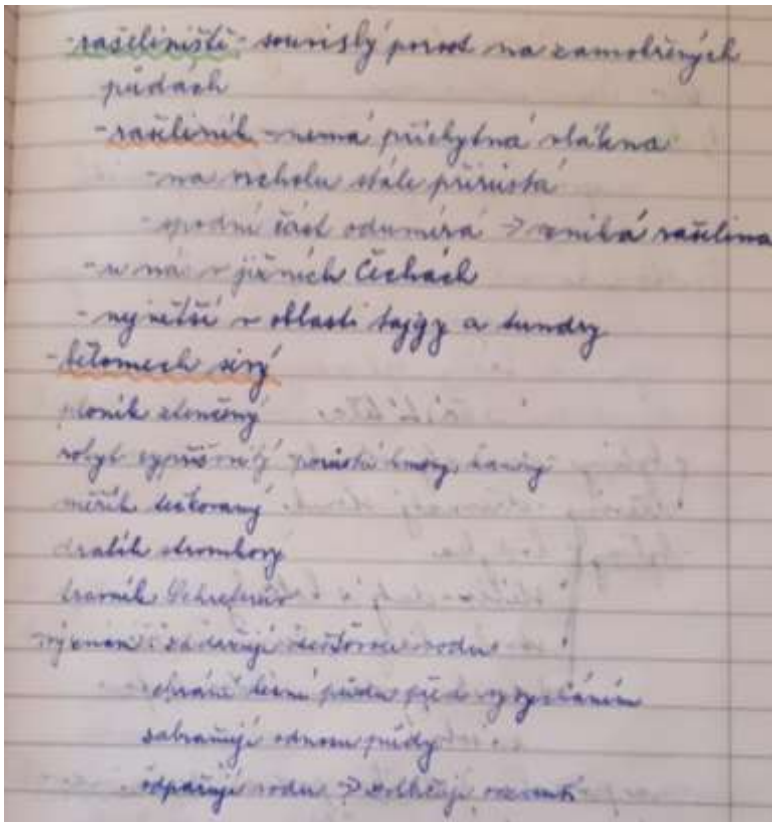 - rašeliniště - souvislý porost na zamokřených
půdách
- rašeliník - nemá příchytná vlákna
- na vrcholu stále přirůstá
- spodní část odumírá → vzniká rašelina
- u nás v jižních Čechách
- největší v oblasti tajgy a tundry
- bělomech sivý
ploník ztenčený
rokyt cypřišovitý porůstá kmeny, kameny
měřík tečkovaný
drabík stromkový
travník Schreberův
význam: zadržují dešťovou vodu
chrání lesní půdu před vysycháním
zabraňují odnosu půdy
odpařují vodu → zvlhčují